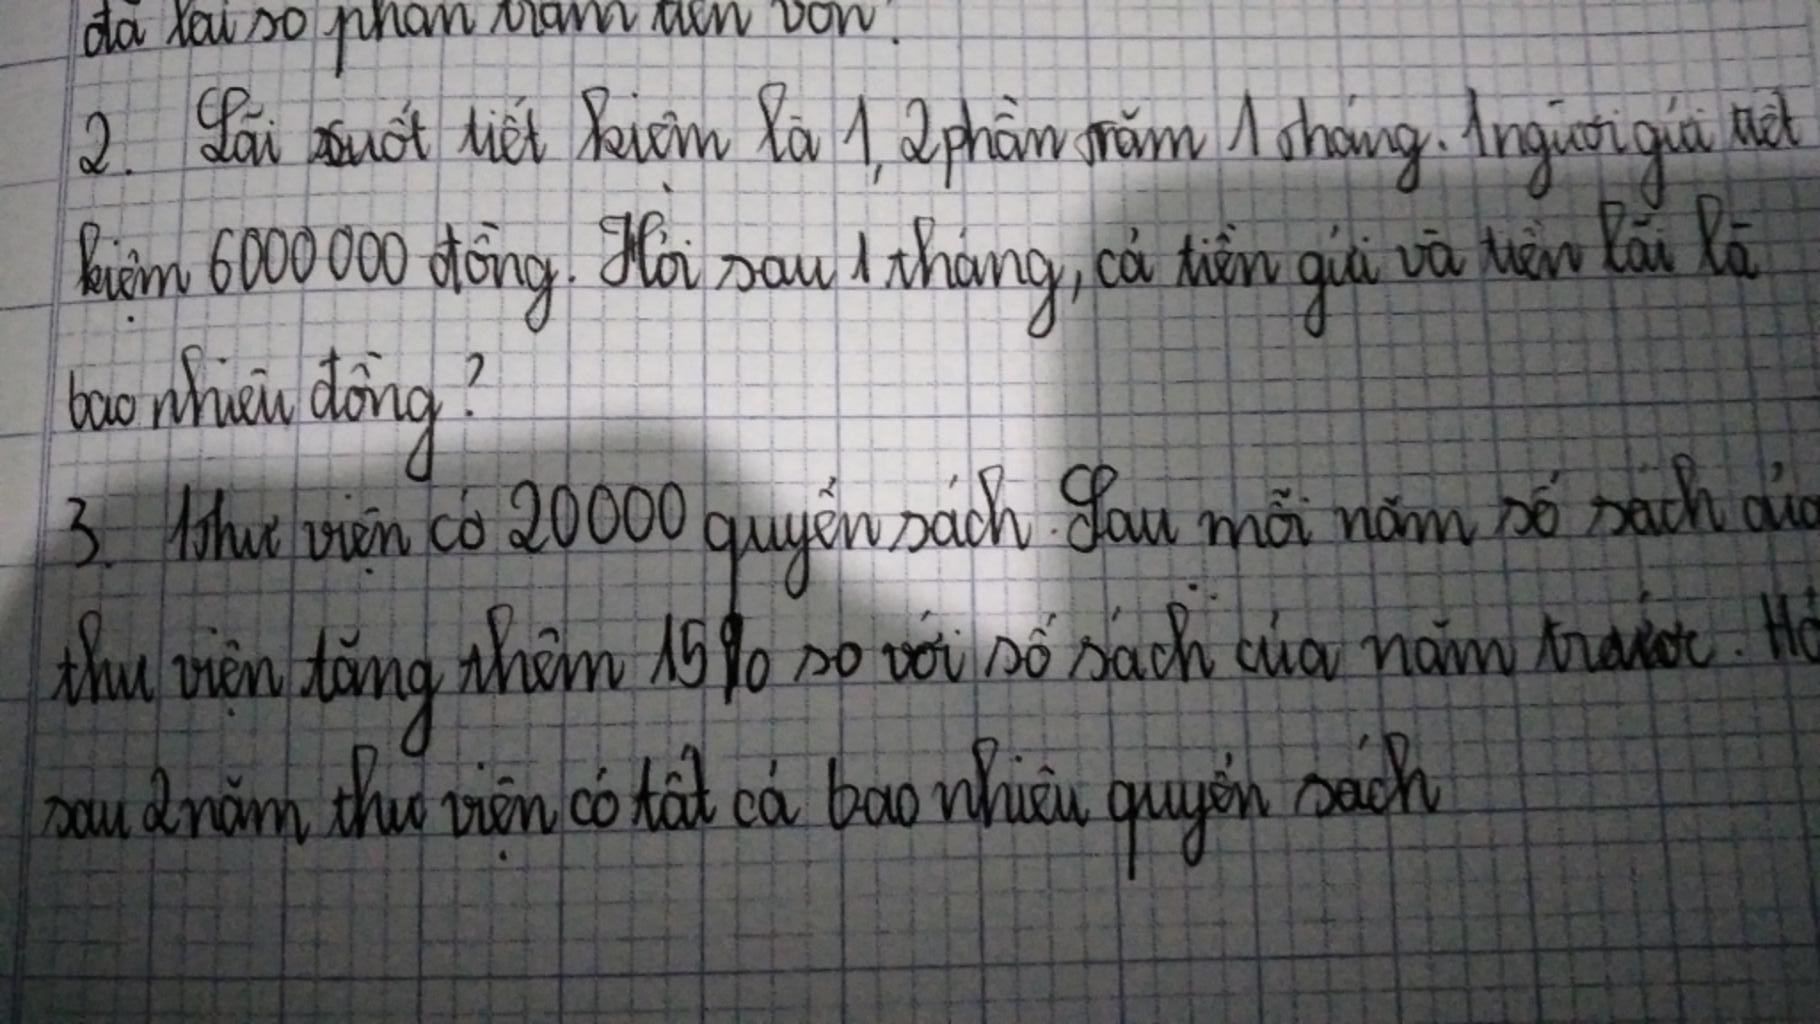 đã lãi số phần trăm tiền vốn.
2. Lãi suất tiết kiệm là 1,2 phần trăm 1 tháng. 1 người gửi tiết
kiệm 6000 000 đồng. Hỏi sau 1 tháng, cả tiền gửi và tiền lãi là
bao nhiêu đồng?
3. 1 thư viện có 20000 quyển sách. Sau mỗi năm số sách của
thư viện tăng thêm 15% so với số sách của năm trước. Hỏ
sau 2 năm thư viện có tất cả bao nhiêu quyển sách